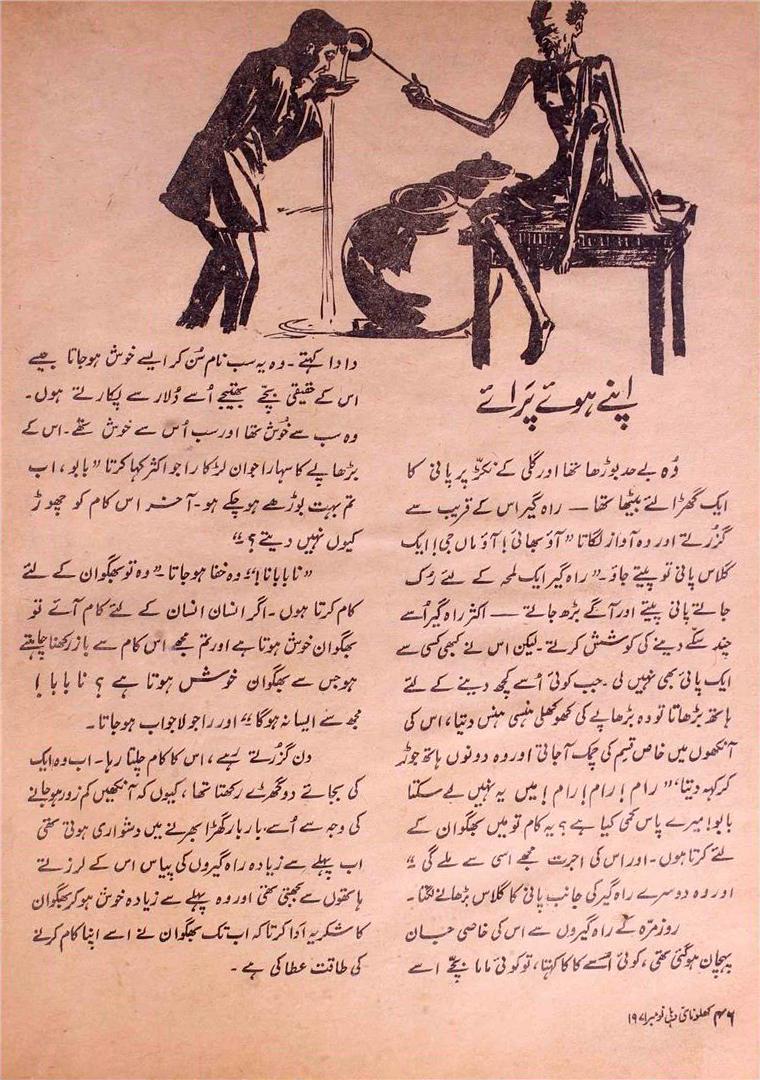 اپنے ہوئے پَرائے
وُہ بے حد بوڑھا تھا اور گلی کے نکڑ پر پانی کا
ایک گھڑا لئے بیٹھا تھا — راہ گیر اس کے قریب سے
گزُرتے اور وہ آواز لگاتا ”آؤ بھائی! آؤ ماں جی! ایک
گلاس پانی تو پیتے جاؤ۔“ راہ گیر ایک لمحہ کے لئے رُک
جاتے پانی پیتے اور آگے بڑھ جاتے — اکثر راہ گیر اُسے
چند سکّے دینے کی کوشش کرتے۔ لیکن اس نے کبھی کسی سے
ایک پائی بھی نہیں لی۔ جب کوئی اُسے کچھ دینے کے لئے
ہاتھ بڑھاتا تو وہ بڑھاپے کی کھوکھلی ہنسی ہنس دیتا، اس کی
آنکھوں میں خاص قسم کی چمک آجاتی اور وہ دونوں ہاتھ جوڑ
کر کہہ دیتا، ”رام! رام! رام! میں یہ نہیں لے سکتا
بابو! میرے پاس کمی کیا ہے؟ یہ کام تو میں بھگوان کے
لئے کرتا ہوں۔ اور اس کی اجرت مجھے اسی سے ملے گی“
اور وہ دوسرے راہ گیر کی جانب پانی کا گلاس بڑھانے لگتا۔
روزمرّہ کے راہ گیروں سے اس کی خاصی جان
پہچان ہوگئی تھی، کوئی اُسے کاکا کہتا، تو کوئی ماما بچّے اسے
دادا کہتے۔ وہ یہ سب نام سُن کر ایسے خوش ہوجاتا جیسے
اس کے حقیقی بچّے بھتیجے اُسے دُلار سے پکارتے ہوں۔
وہ سب سے خوش تھا اور سب اُس سے خوش تھے۔ اس کے
بڑھاپے کا سہارا جوان لڑکا راجو اکثر کہا کرتا ”بابو، اب
تم بہت بوڑھے ہو چکے ہو۔ آخر اس کام کو چھوڑ
کیوں نہیں دیتے؟“
”نا بابا نا!“ وہ خفا ہوجاتا۔ ”وہ تو بھگوان کے لئے
کام کرتا ہوں۔ اگر انسان انسان کے لئے کام آئے تو
بھگوان خوش ہوتا ہے اور تم مجھے اس کام سے باز رکھنا چاہتے
ہو جس سے بھگوان خوش ہوتا ہے؟ نا بابا!
مجھ سے ایسا نہ ہوگا“ اور راجو لاجواب ہوجاتا۔
دن گزُرتے رہے، اس کا کام چلتا رہا۔ اب وہ ایک
کی بجائے دو گھڑے رکھتا تھا، کیوں کہ آنکھیں کم زور ہوجانے
کی وجہ سے اُسے بار بار گھڑا بھرنے میں دشواری ہوتی تھی
اب پہلے سے زیادہ راہ گیروں کی پیاس اس کے لرزتے
ہاتھوں سے بجھتی تھی اور وہ پہلے سے زیادہ خوش ہو کر بھگوان
کا شکریہ ادا کرتا کہ اب تک بھگوان نے اسے اپنا کام کرنے
کی طاقت عطا کی ہے۔
۴۶ کھلونا نئی دہلی نومبر ۱۹۷۱